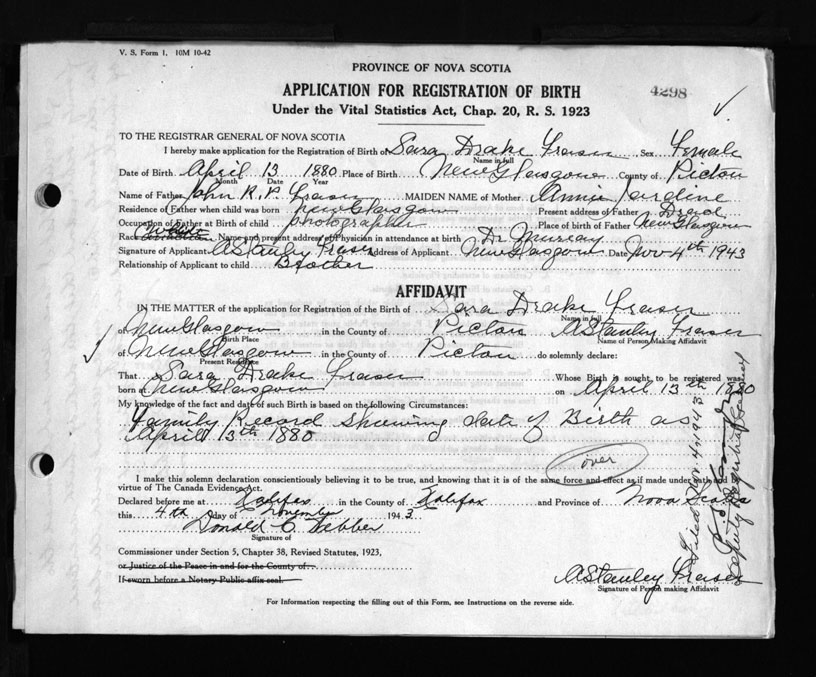 V. S. Form 1. 10M 10-42
PROVINCE OF NOVA SCOTIA
APPLICATION FOR REGISTRATION OF BIRTH
4298
Under the Vital Statistics Act, Chap. 20, R. S. 1923
TO THE REGISTRAR GENERAL OF NOVA SCOTIA
I hereby make application for the Registration of Birth of Sara Drake Fraser Sex Female
Name in full
Date of Birth April 13 1880 Place of Birth New Glasgow County of Pictou
Month Date Year
Name of Father John R. P. Fraser MAIDEN NAME of Mother Annie Jardine
Residence of Father when child was born New Glasgow Present address of Father Dead
Occupation of Father at Birth of child photographer Place of Birth of Father New Glasgow
Race White Name and present address of Physician in attendance at birth Dr. Murray
Signature of Applicant A Stanley Fraser Address of Applicant New Glasgow Date Nov 4th 1943
Relationship of Applicant to child Brother
AFFIDAVIT
IN THE MATTER of the application for Registration of the Birth of Sara Drake Fraser
Name in full
of New Glasgow in the County of Pictou A Stanley Fraser
Birth Place Name of Person Making Affidavit
of New Glasgow in the County of Pictou do solemnly declare:
Present Residence
That Sara Drake Fraser Whose Birth is sought to be registered was
born at New Glasgow on April 13th 1880
My knowledge of the fact and date of such Birth is based on the following Circumstances:
Family Record showing date of Birth as
April 13th 1880
over
I make this solemn declaration conscientiously believing it to be true, and knowing that it is of the same force and effect as if made under oath and by
virtue of The Canada Evidence Act.
Declared before me at Halifax in the County of Halifax and Province of Nova Scotia
this 4th day of November 1943
Donald C.
Signature of
Commissioner under Section 5, Chapter 38, Revised Statutes, 1923,
or Justice of the Peace in and for the County of
If sworn before a Notary Public affix seal.
A Stanley Fraser
Signature of Person making Affidavit
For Information respecting the filling out of this Form, see Instructions on the reverse side.
Filed Nov 4, 1943
Deputy Registrar General